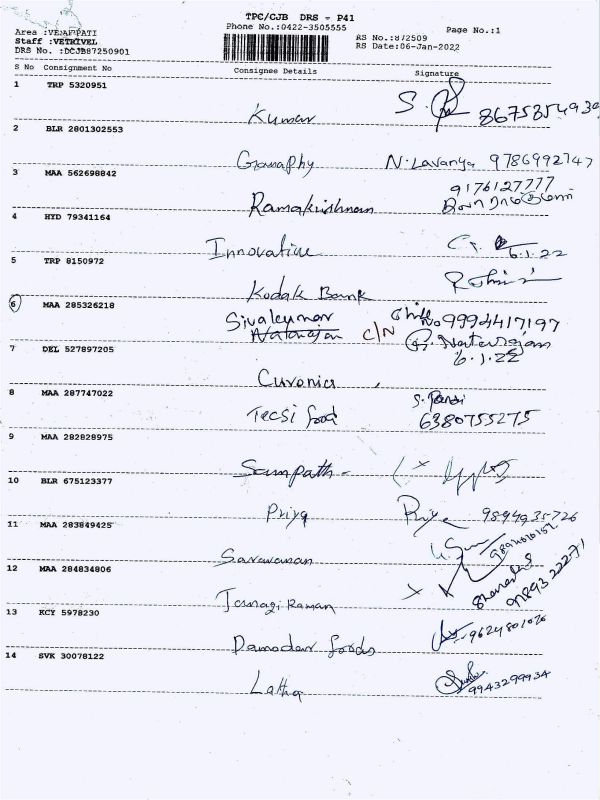 TPC/CJB DRS - P41
Phone No.:0422-3505555
Page No.:1
Area :VEDAPPATI
Staff :VETRIVEL
DRS No. :DCJB87250901
RS No.:872509
RS Date:06-Jan-2022
S No Consignment No Consignee Details Signature
1 TRP 5320951
Kumar 8675354939
2 BLR 2801302553
N. Lavanya 9786992747
3 MAA 562698842
9176127777
Ramakrishnan
4 HYD 79341164
Innovative 6.1.22
5 TRP 8150972
Kodak Bank
6 MAA 285326218
Sivakumar No 9994417197
Natarajan C/N G. Natarajan
6.1.22
7 DEL 527897205
Cuvonics
8 MAA 287747022
Tecsi food 6380755275
9 MAA 282828975
Sampath
10 BLR 675123377
Priya Priya 9894935726
11 MAA 283849425
Saravanan
12 MAA 284834806
13 KCY 5978230
Damodar foods 9624801026
14 SVK 30078122
Latha 9943299934